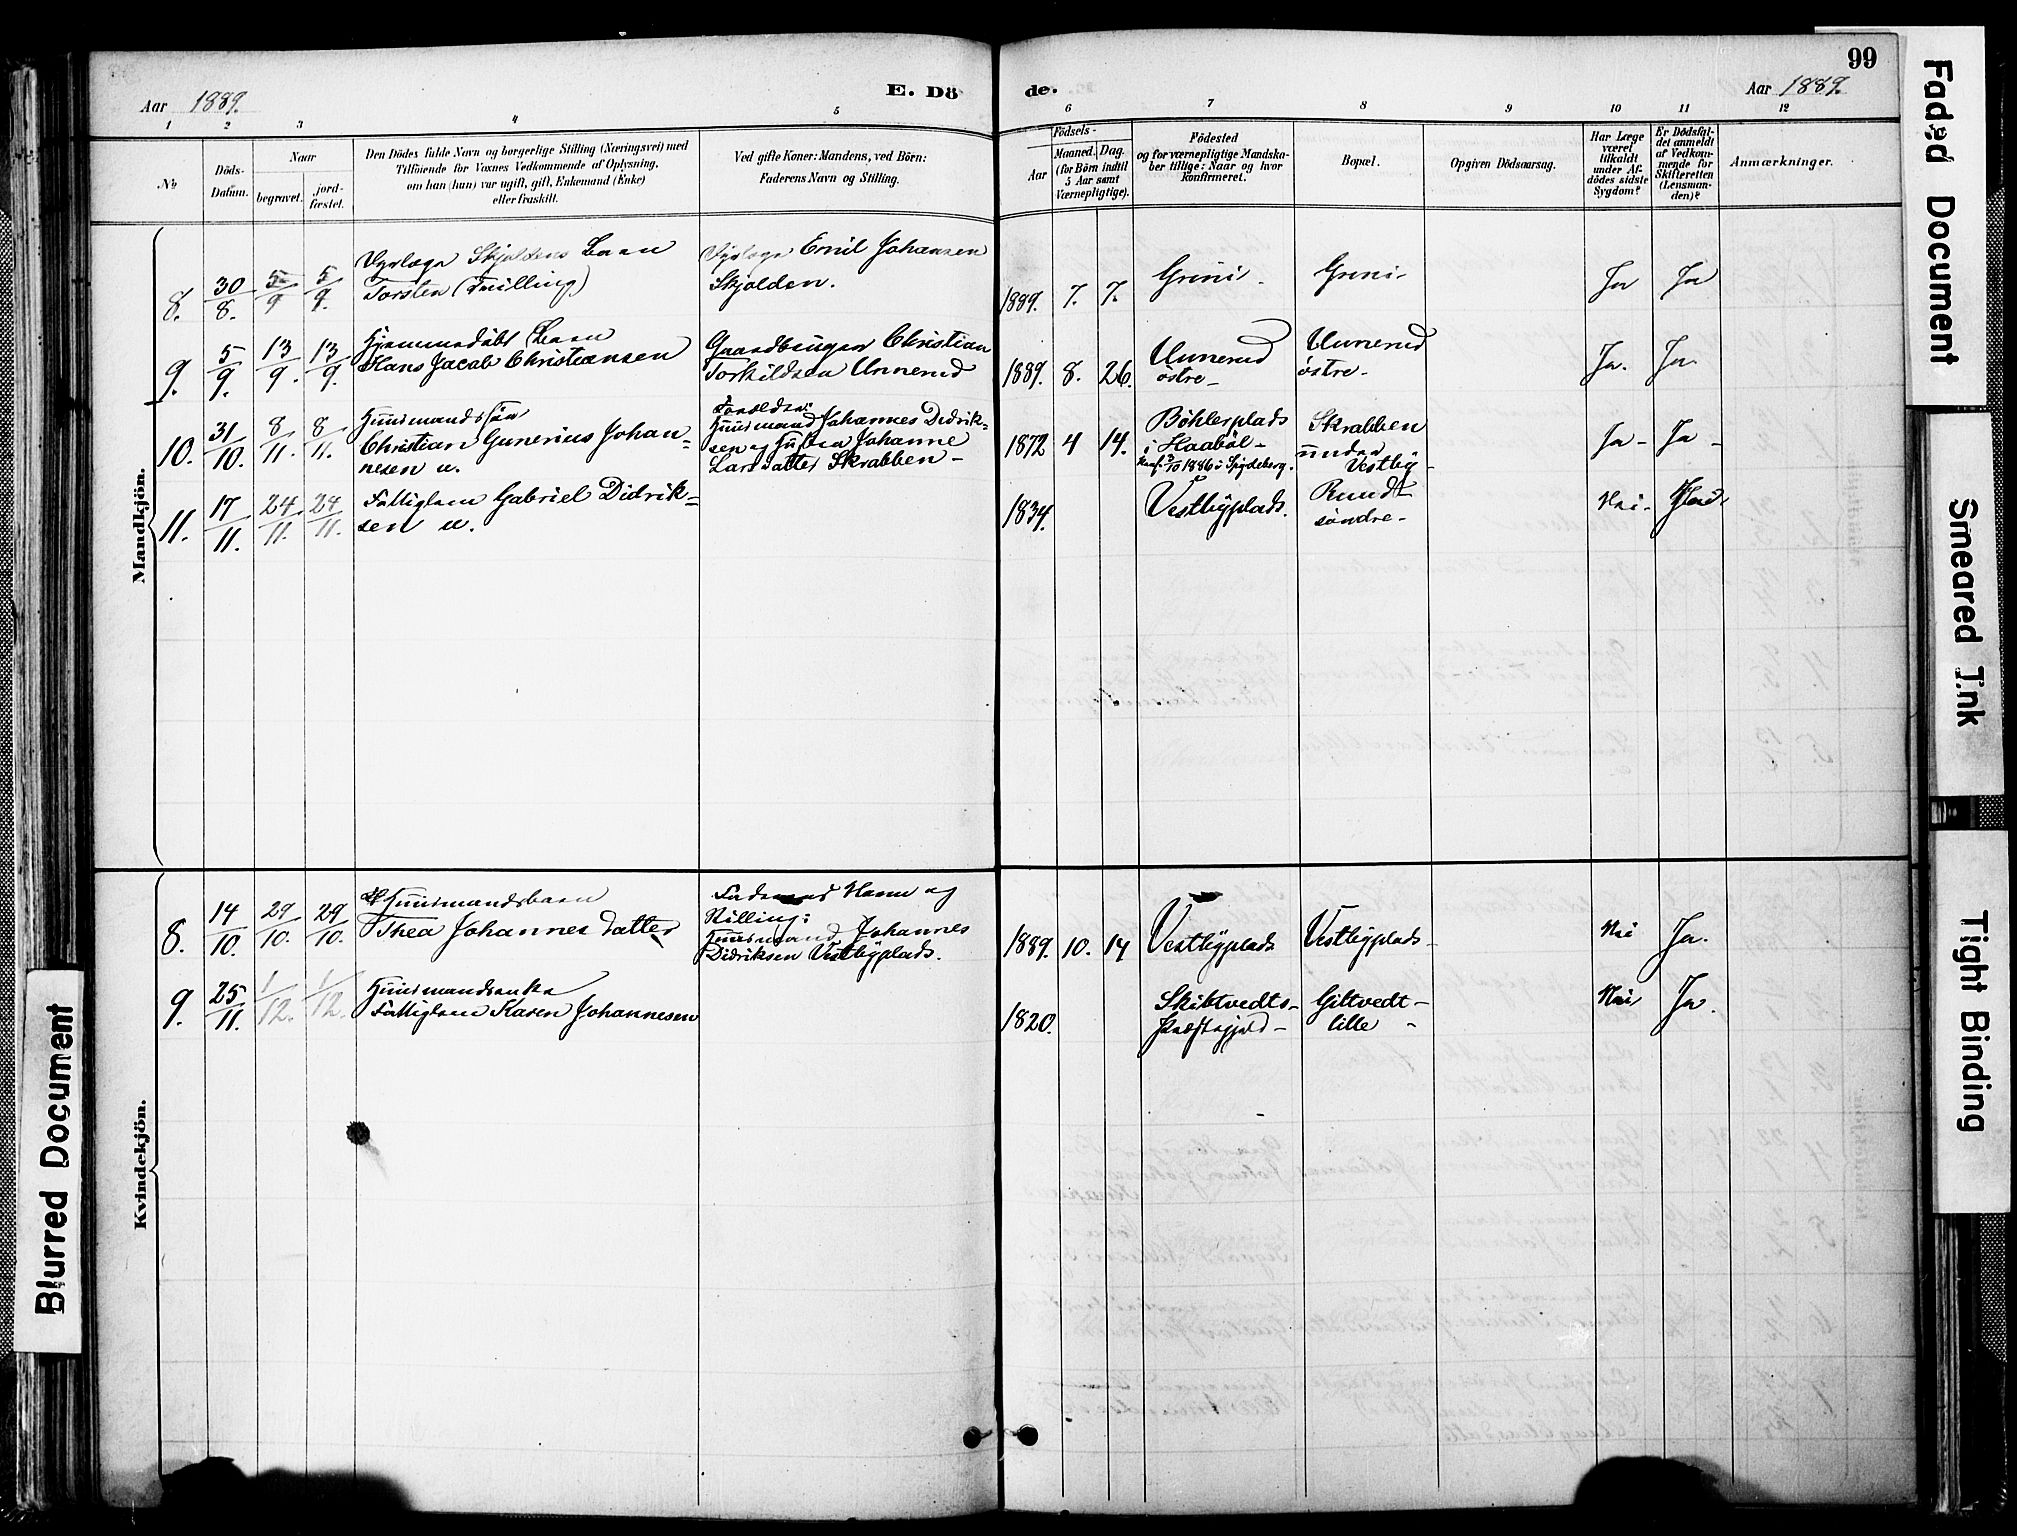 99
Aar 1889.
E. Dö
de.
Aar 1889.
1 2 3 4 5 6 7 8 9 10 11 12
No
Döds-
Datum.
Naar
begravet.
jord-
fæstet.
Den Dödes fulde Navn og borgerlige Stilling (Næringsvei) med
Tilföiende for Voxnes Vedkommende af Oplysning,
om han (hun) var ugift, gift, Enkemand (Enke)
eller fraskilt.
Ved gifte Koner: Mandens, ved Börn:
Faderens Navn og Stilling.
Födsels-
Aar
Maaned.
Dag.
(for Börn indtil
5 Aar samt
Værnepligtige).
Födested
og for værnepligtige Mandska-
ber tillige: Naar og hvor
konfirmeret.
Bopæl.
Opgiven Dödsaarsag.
Har Læge
været
tilkaldt
under Af-
dödes sidste
Sygdom?
Er Dödsfal-
det anmeldt
af Vedkom-
mende for
Skifteretten
(Lensman-
den)?
Anmærkninger.
Mandkjön.
8. 30/8. 5/9 5/9.
Dyrlæge Skjoldens Barn
Torsten (Tvilling)
Dyrlæge Emil Johansen
Skjolden.
1889. 7. 7. Grini- Grini- Ja Ja
9. 5/9. 13/9. 13/9.
Hjemmedøbt Barn
Hans Jacob Christiansen
Gaardbruger Christian
Torkildsen Unnerud
1889. 8. 26.
Unnerud
østre-
Unnerud
østre-
Ja. Ja
10. 31/10. 8/11. 8/11.
Huusmandssøn
Christian Gunerius Johan-
nesen u.
Forældre:
Huusmand Johannes Didrik-
sen og Hustru Johanne
Larsdatter Skrabben-
1872 4 14.
Böhlerplads
i Haaböl-
Konf. 3/10 1886 i Spydeberg.
Skrabben
under
Vestby-
Ja- Ja-
11. 17/11. 24/11. 24/11.
Fattiglem Gabriel Didrik-
sen u.
1834.
Vestbyplads.
Rund
søndre-
Nei-
Kvindekjön.
8. 14/10. 29/10. 29/10.
Huusmandsbarn
Thea Johannesdatter
Faderens Navn og
Stilling:
Huusmand Johannes
Didriksen Vestbyplads.
1889. 10. 14
Vestbyplads Vestbyplads- Nei Ja.
9. 25/11. 1/12. 1/12.
Huusmandsenke
Fattiglem Karen Johannesen
1820.
Skibtvedts-
Præstegjeld-
Giltvedt-
lille-
Nei Ja.
Faded Document
Smeared Ink
Tight Binding
Blurred Document